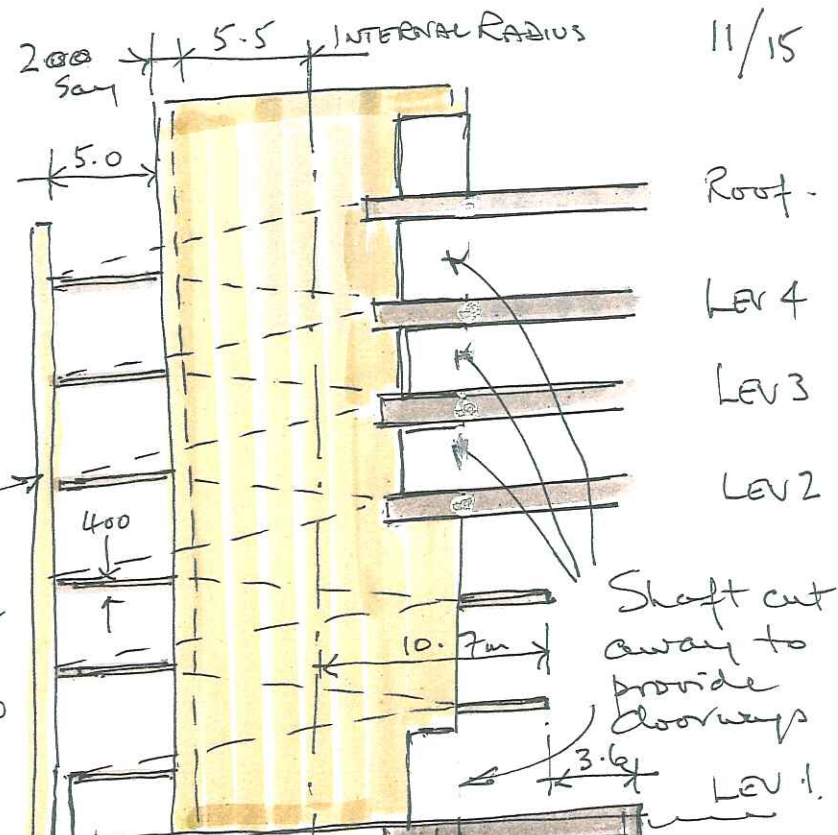 200
Say
5.5
INTERNAL RADIUS
11/15
5.0
ROOF.
LEV 4
LEV 3
LEV 2
400
10.7m
Shaft cut
away to
provide
doorways
3.6
LEV 1.